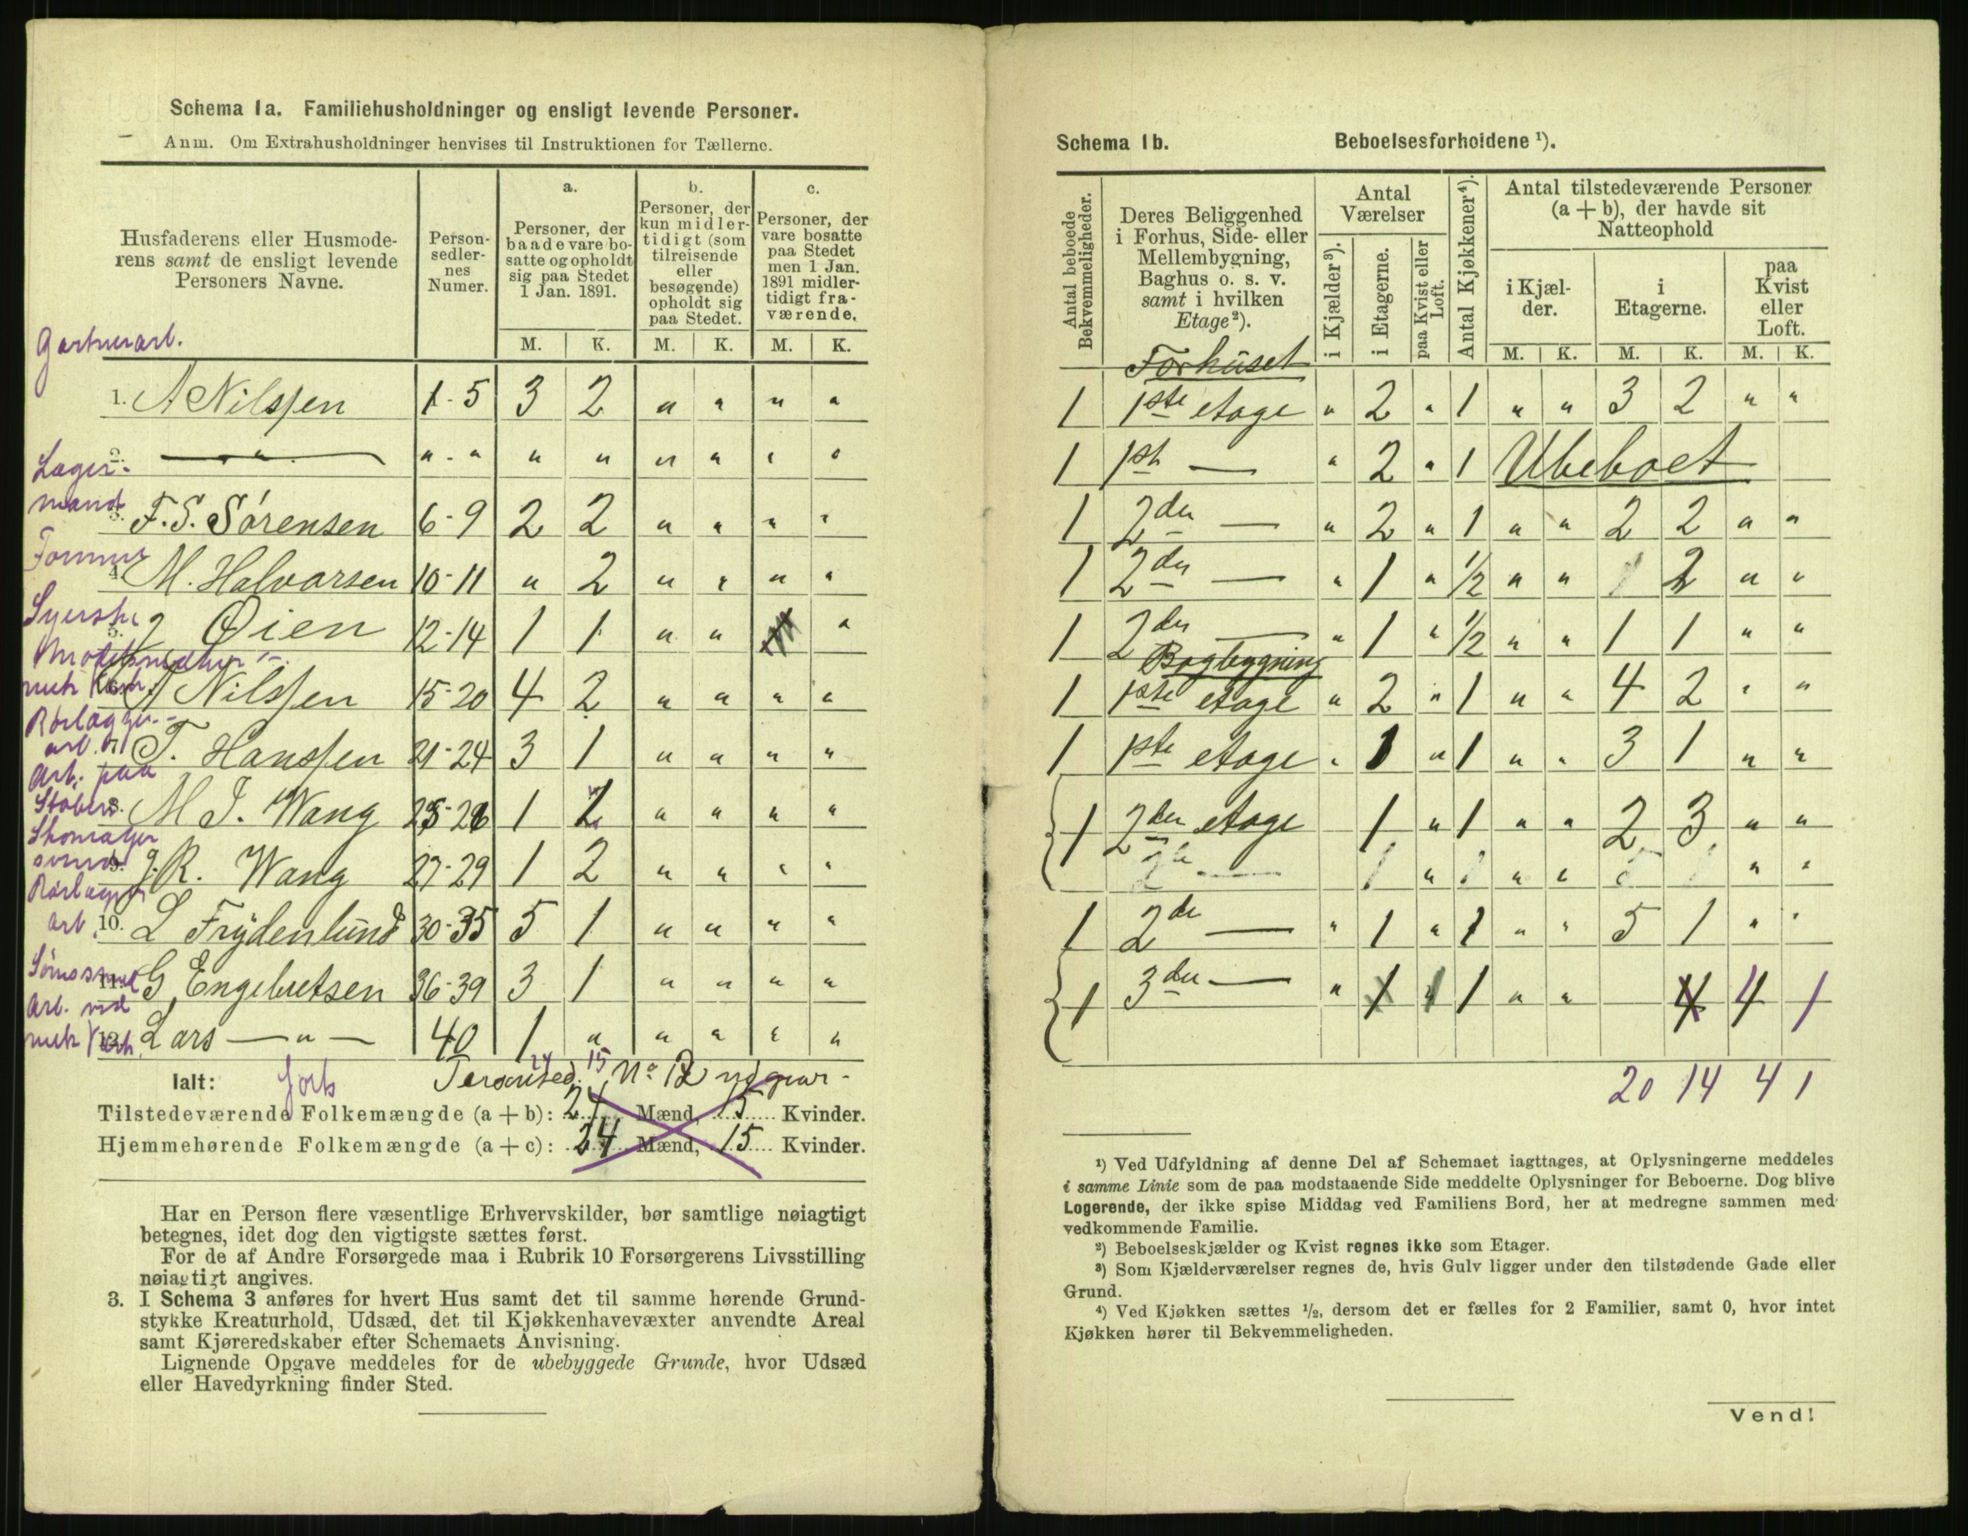 Schema 1a. Familiehusholdninger og ensligt levende Personer.
Anm. Om Extrahusholdninger henvises til Instruktionen for Tællerne.
Husfaderens eller Husmode-
rens samt de ensligt levende
Personers Navne.
Person-
sedler-
nes
Numer.
a.
Personer, der
baade vare bo-
satte og opholdt
sig paa Stedet
1 Jan. 1891.
b.
Personer, der
kun midler-
tidigt (som
tilreisende
eller
besøgende)
opholdt sig
paa Stedet.
c.
Personer, der
vare bosatte
paa Stedet
men 1 Jan.
1891 midler-
tidigt fra-
værende.
M. K. M. K. M. K.
Gartnerarb.
1. A Nilssen 1-5 3 2 " " " "
2. — " — " - " " " " " " "
Lager-
mand
3. F. S. Sørensen 6-9 2 2 " " " "
4. M. Halvorsen 10-11 " 2 " " " "
Syerske
5. J Øien 12-14 1 1 " " "
6. A Nilssen 15-20 4 2 " " " "
Rørlægger-
arb.
7. T. Hanssen 21-24 3 1 " " " "
Arb. paa
8. M J. Wang 25-26 1 1 " " " "
Skomager
svend
9. J. R. Wang 27-29 1 2 " " " "
Rørlægger
arb.
10. L Frydenlund 30-35 5 1 " " " "
11. G. Engebretsen 36-39 3 1 " " " "
Arb. ved
12. Lars — " — 40 1 " " " " "
Ialt: 24 15 No 12 udgaar-
Tilstedeværende Folkemængde (a + b): 24 Mænd, 15 Kvinder.
Hjemmehørende Folkemængde (a + c): 24 Mænd, 15 Kvinder.
Har en Person flere væsentlige Erhvervskilder, bør samtlige nøiagtigt
betegnes, idet dog den vigtigste sættes først.
For de af Andre Forsørgede maa i Rubrik 10 Forsørgerens Livsstilling
nøiagtigt angives.
3. I Schema 3 anføres for hvert Hus samt det til samme hørende Grund-
stykke Kreaturhold, Udsæd, det til Kjøkkenhavevæxter anvendte Areal
samt Kjøreredskaber efter Schemaets Anvisning.
Lignende Opgave meddeles for de ubebyggede Grunde, hvor Udsæd
eller Havedyrkning finder Sted.
Schema 1b. Beboelsesforholdene ¹).
Antal beboede
Bekvemmeligheder.
Deres Beliggenhed
i Forhus, Side- eller
Mellembygning,
Baghus o. s. v.
samt i hvilken
Etage²).
Antal
Værelser
i Kjælder³).
i Etagerne.
paa Kvist eller
Loft.
Antal Kjøkkener⁴).
Antal tilstedeværende Personer
(a + b), der havde sit
Natteophold
i Kjæl-
der.
i
Etagerne.
paa
Kvist
eller
Loft.
M. K. M. K. M. K.
Forhuset
1 1ste etage " 2 " 1 " " 3 2 " "
1 1st — " 2 " 1 Ubeboet
1 2den — " 2 " 1 " " 2 2 " "
1 2den — " 1 " 1/2 " " 2 " "
1 2den — " 1 " 1/2 " " 1 1 " "
Bagbygning
1 1ste etage " 2 " 1 " " 4 2 " "
1 1ste etage " 1 " 1 " " 3 1 " "
1 2den etage 1 " 1 " " 2 3 " "
2de — 1 " 1 " " 1 " "
1 2de — " 1 " 1 " " 5 1 " "
1 3den — " 1 1 1 " " 4 4 1
20 14 4 1
¹) Ved Udfyldning af denne Del af Schemaet iagttages, at Oplysningerne meddeles
i samme Linie som de paa modstaaende Side meddelte Oplysninger for Beboerne. Dog blive
Logerende, der ikke spise Middag ved Familiens Bord, her at medregne sammen med
vedkommende Familie.
²) Beboelseskjælder og Kvist regnes ikke som Etager.
³) Som Kjælderværelser regnes de, hvis Gulv ligger under den tilstødende Gade eller
Grund.
⁴) Ved Kjøkken sættes 1/2, dersom det er fælles for 2 Familier, samt 0, hvor intet
Kjøkken hører til Bekvemmeligheden.
Vend!